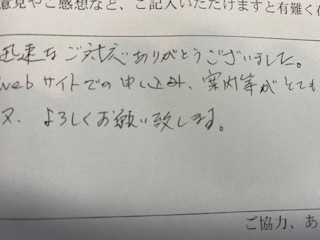 意見やご感想など、ご記入いただけますと有難く
迅速なご対応ありがとうございました。
webサイトでの申し込み、案内等がとても
又、よろしくお願い致します。
ご協力、あ